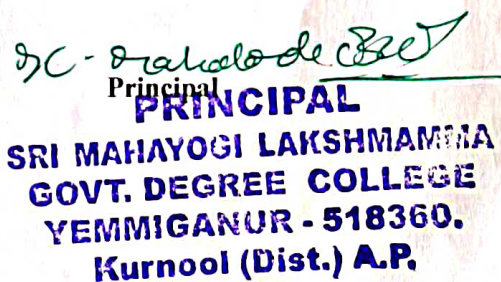 Principal
PRINCIPAL
SRI MAHAYOGI LAKSHMAMMA
GOVT. DEGREE COLLEGE
YEMMIGANUR - 518360.
Kurnool (Dist.) A.P.